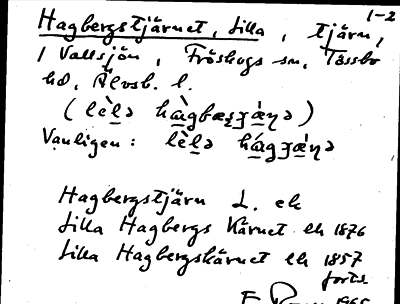 1-2
Hagbergstjärnet, Lilla, tjärn,
i Vallsjön, Fröskogs sn, Tössbo
hd, Älvsb. l.
(lèlə
Vanligen: lèlə
Hagbergstjärn L. ek
Lilla Hagbergs Kärnet ek 1876
Lilla Hagbergskärnet ek 1857
forts.